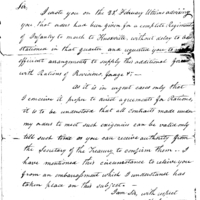 Sir,
I wrote you on the 28th February Ultimo advising
you that orders had been given for a complete Regiment
of Infantry to march to Nacogdoches without delay to be
stationed in that quarter and requested you to make
efficient arrangements to supply this additional force
with Rations of Provisions Forage &c.
As it is in urgent cases only that
I conceive it proper to direct agreements for Rations,
it is to be understood that all contracts made under
my most such exigencies can be
till such time as you can receive authority from
the Secretary of the Treasury to confirm them. I
have mentioned this circumstance to relieve you
from an embarrassment which I understand has
taken place on this subject.
I am Sir, with respect